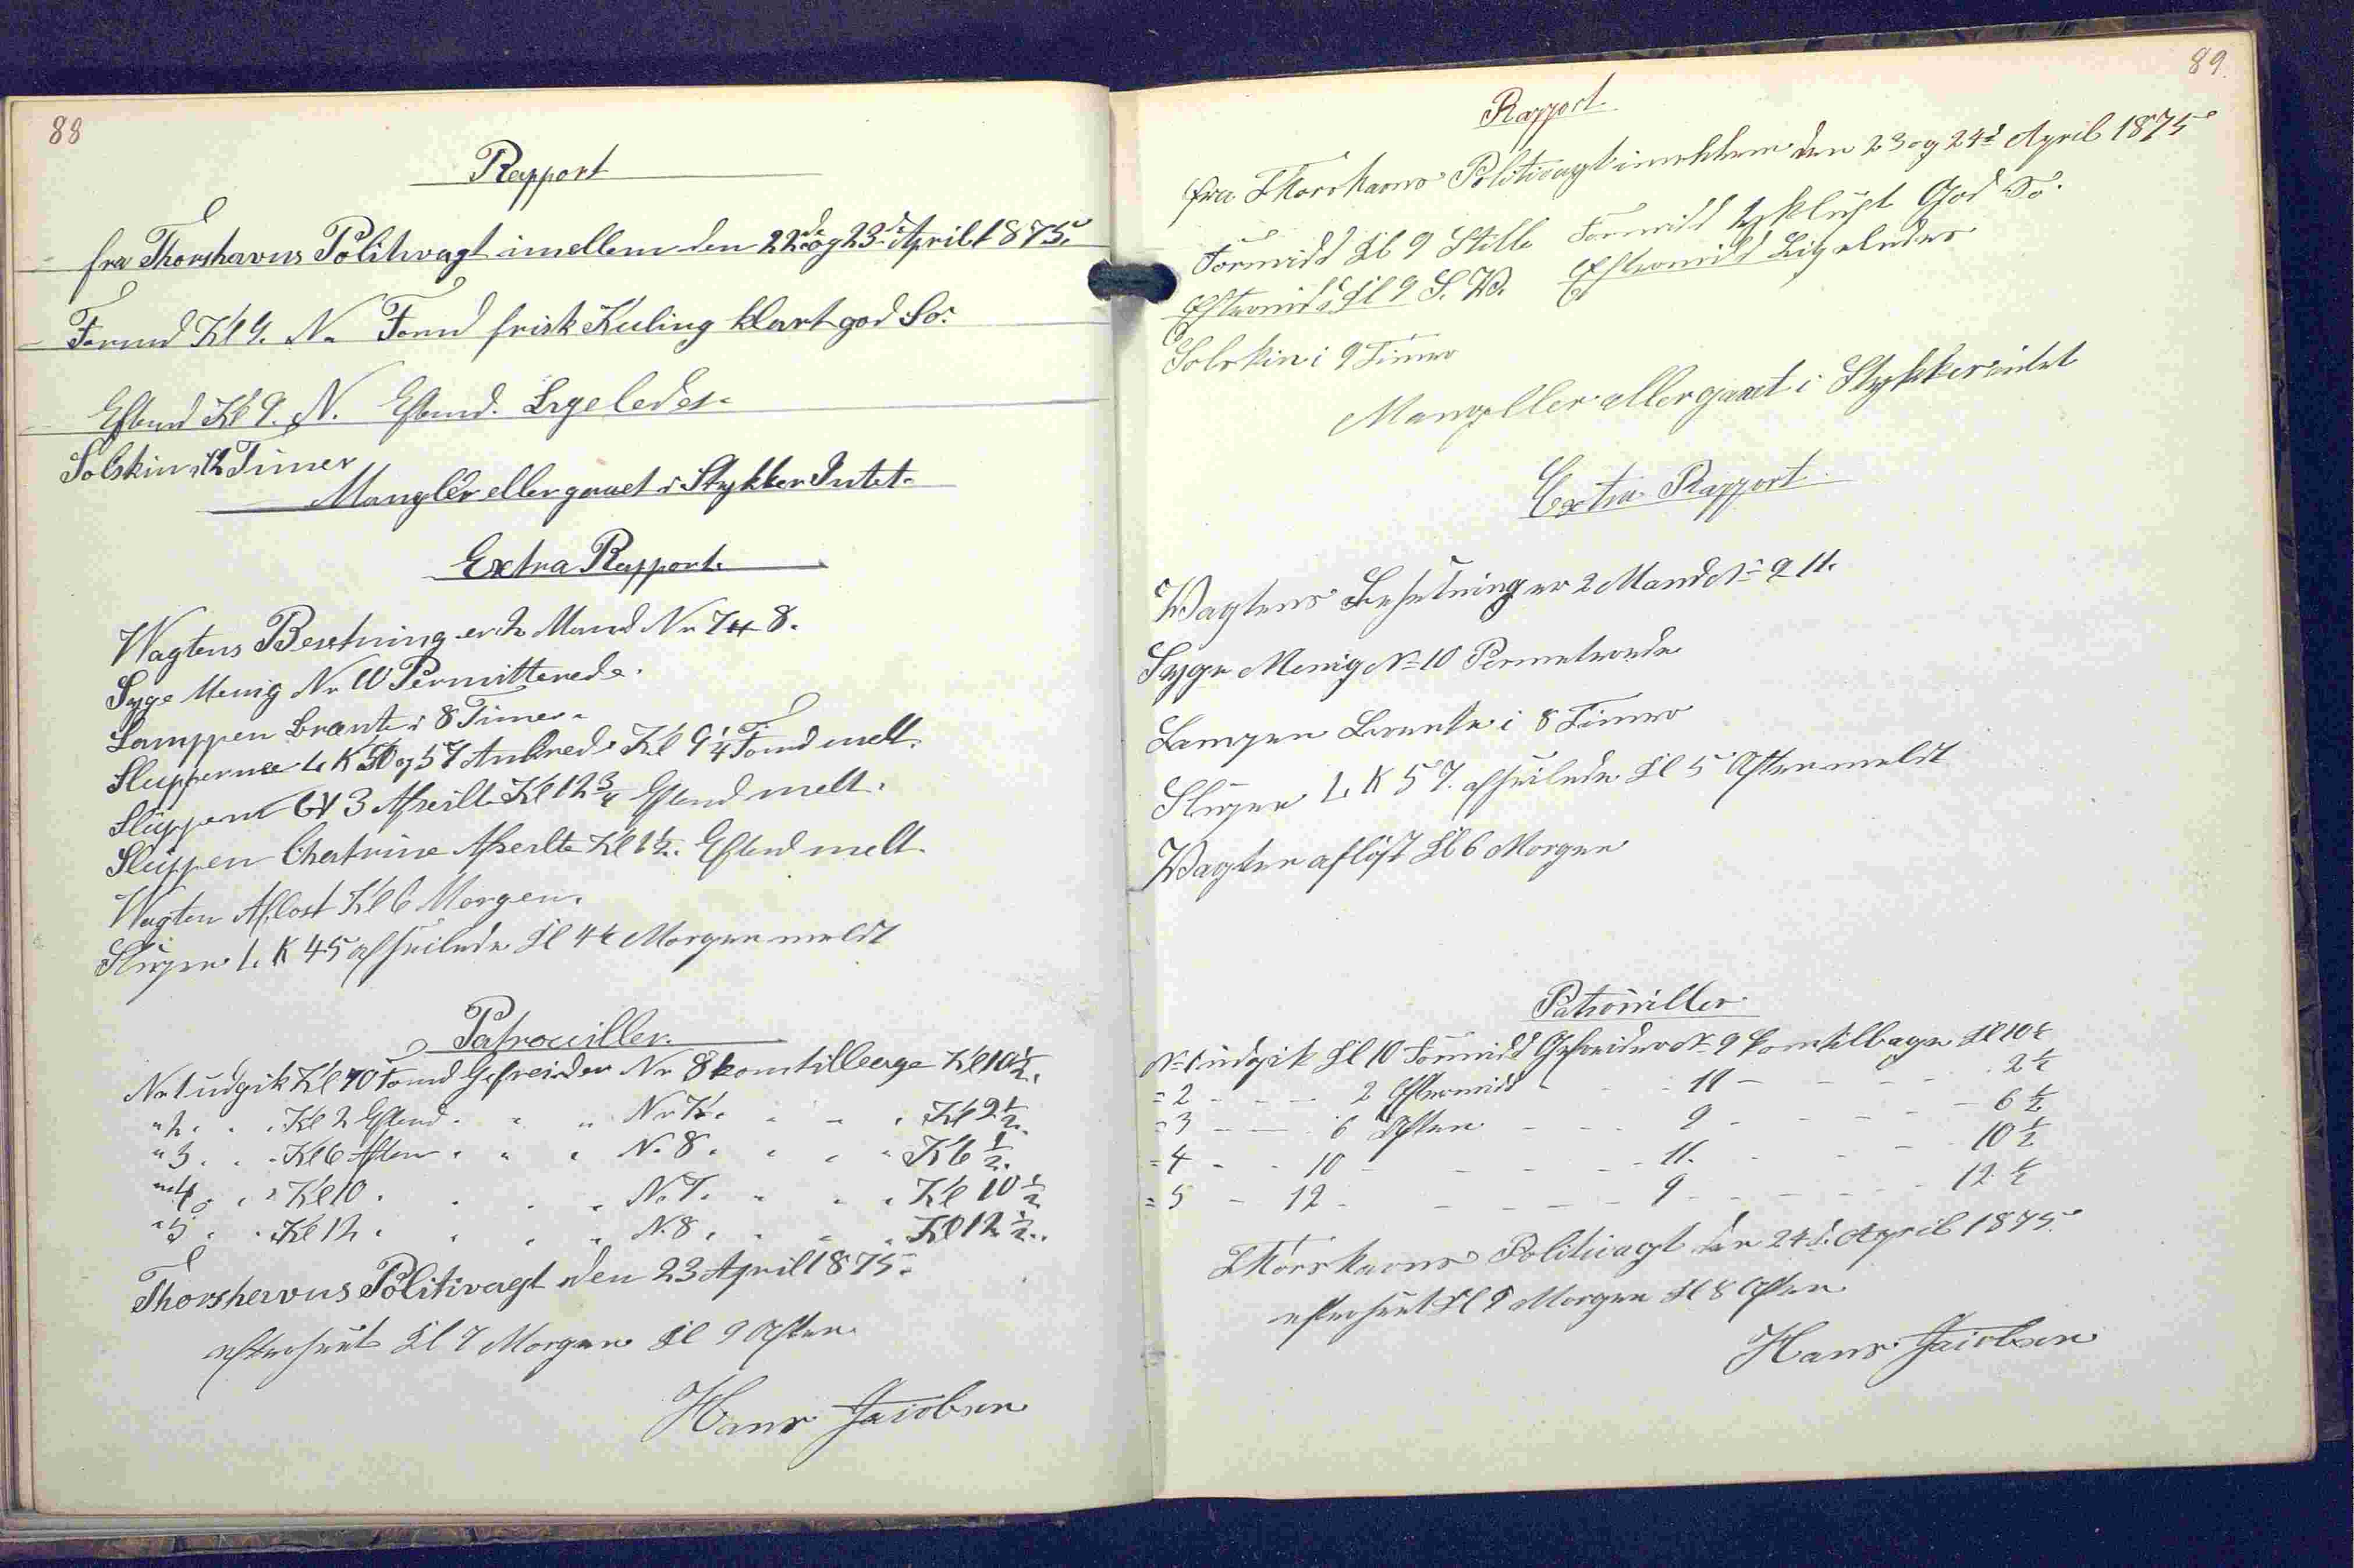 88
Rapport
fra Thorshavns Politivagt imellem den 22de og 23de April 1875.
Formd Kl 9. N. Formd frisk Kuling klart god So.
Eftmd Kl 9. N. Eftmd. Ligeledes.
Solskin i 12 Timer
Mangler eller gaaet i Stykker Intet.
Extra Rapport.
Wagtens Besetning er 2 Mand Nr 7 & 8.
Syge Menig Nr 10 Permitterede.
Lamppen brænte i 8 Timer.
Slupperne L K 50 og 57 Ankrede Kl 9 1/4 Formd melt.
Sluppen GV 3 Afseilte Kl 12 3/4 Eftmd melt.
Sluppen Chatrine Afseilte Kl 1 1/2. Eftmd melt.
Wagten Aflost Kl 6 Morgen.
Slupen L. K 45 afseilede Kl 4 1/2 Morgen meldt
Patrouiller.
Nr 1 udgik Kl 10 Formd Gefreider Nr 8 kom tilbage Kl 10 1/2.
" 2. . . Kl 2 Eftmd. " " Nr 7. . . . Kl 2 1/2.
" 3. . . Kl 6 Aften. " " N. 8. . . . Kl 6 1/2.
" 4. . . Kl 10. . . . N. 7. . . . Kl 10 1/2
" 5. . . Kl 12. . . . N. 8. . . . Kl 12 1/2.
Thorshavns Politivagt den 23 April 1875.
efterseet Kl 7 Morgen Kl 9 Aften
Hans Jacobsen
89.
Rapport.
fra Thorshavns Politivagt imellem den 23 og 24d April 1875
Formidd Kl 9 Stille Formidd Tykluft God So.
Eftermidd Kl 9 S. W. Eftermidd Ligeledes
Solskin i 9 Timer
Mangller eller gaaet i Stykker intet
Extra Rapport.
Wagtens Besetning er 2 Mand No 9 11.
Syge Menig No 10 Permeterede
Lampen Brente i 8 Timer
Slupen L K 57. afseilede Kl 5 Aften meldt
Wagten afløst Kl 6 Morgen
Patrouiller
No 1 udgik Kl 10 Formidd Gefreider No 9 kom tilbage Kl 10 1/2
= 2 - - - - 2 Eftermidd - - - 11 - - - - - 2 1/2
= 3 - - - 6 Aften - - - 9 - - - - - 6 1/2
= 4 - - 10 - - - - - 11. - - - - 10 1/2
= 5 - 12 - - - - - 9 - - - - - 12 1/2
Thorshavns Politivagt den 24d. April 1875.
efterseet Kl 8 Morgen Kl 8 Aften
Hans Jacobsen